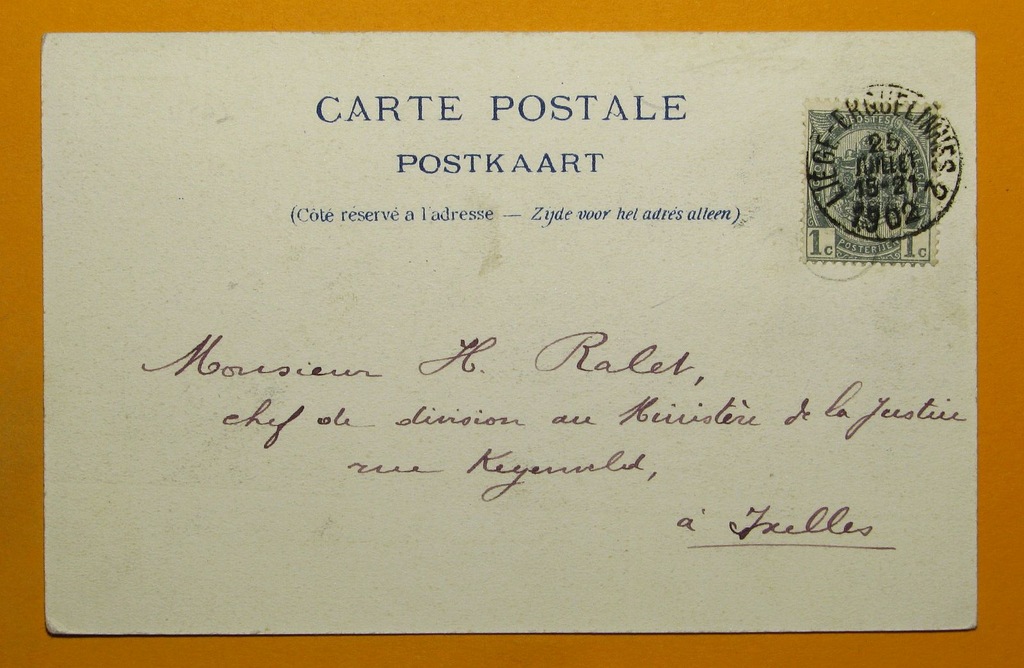 CARTE POSTALE
POSTKAART
(Côté réservé a l'adresse — Zijde voor het adrés alleen)
25
JUILLET
1902
1c POSTERIJEN 1c
Monsieur H. Ralet,
chef de division au Ministère de la Justice
rue Keyenveld,
à Ixelles